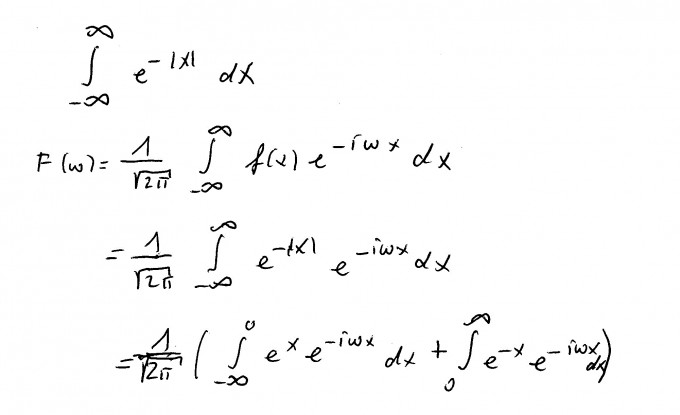 ∫_{-∞}^{∞} e^{-|x|} dx
F(w) = 1/√2π ∫_{-∞}^{∞} f(x) e^{-iwx} dx
= 1/√2π ∫_{-∞}^{∞} e^{-|x|} e^{-iwx} dx
= 1/√2π ( ∫_{-∞}^{0} e^{x} e^{-iwx} dx + ∫_{0}^{∞} e^{-x} e^{-iwx} dx )